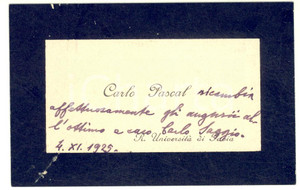 Carlo Pascal ricambia
affettuosamente gli augurii al
l'ottimo e caro Carlo Saggio.
R. Università di Pavia
4. XI. 1925.